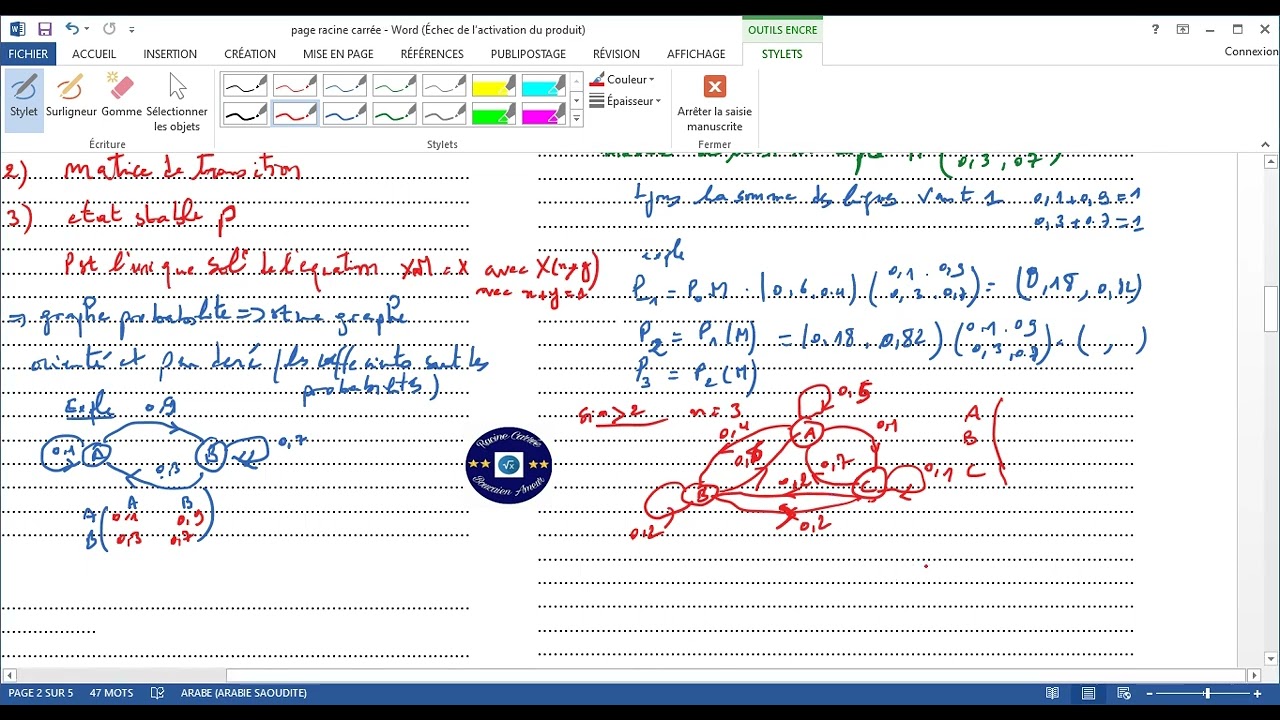 page racine carrée - Word (Échec de l'activation du produit)
OUTILS ENCRE
FICHIER ACCUEIL INSERTION CRÉATION MISE EN PAGE RÉFÉRENCES PUBLIPOSTAGE RÉVISION AFFICHAGE STYLETS
Connexion
Stylet
Surligneur
Gomme
Sélectionner
les objets
Couleur
Épaisseur
Arrêter la saisie
manuscrite
Écriture
Stylets
Fermer
2) matrice de transition
3) etat stable P
Pst l'unique sol° de l'equation XM = X avec X(x, y)
avec x+y=1
=> graphe probabiliste => st une graphe
orienté et pondéré (les coefficients sont les
probabilités)
Exple
0,9
0,1 A B 0,7
0,3
A B
A 0,1 0,9
B 0,3 0,7
0,3 , 07
Tjrs la somme des lignes vaut 1 0,1+0,9=1
0,3+0.7=1
exple
P1 = P0 M = (0,6 0.4) (0,1 0,9 0,3 0,7) = (0,18, 0,82)
P2 = P1 (M) = (0,18 . 0,82) (0,1 09 0,3 0,7) = ( , )
P3 = P2 (M)
Si n > 2 n = 3
0,4 A 0,1
0,7
B C 0,1
0.2 0,2
A
B
C
Racine Carrée
√x
PAGE 2 SUR 5 47 MOTS ARABE (ARABIE SAOUDITE)